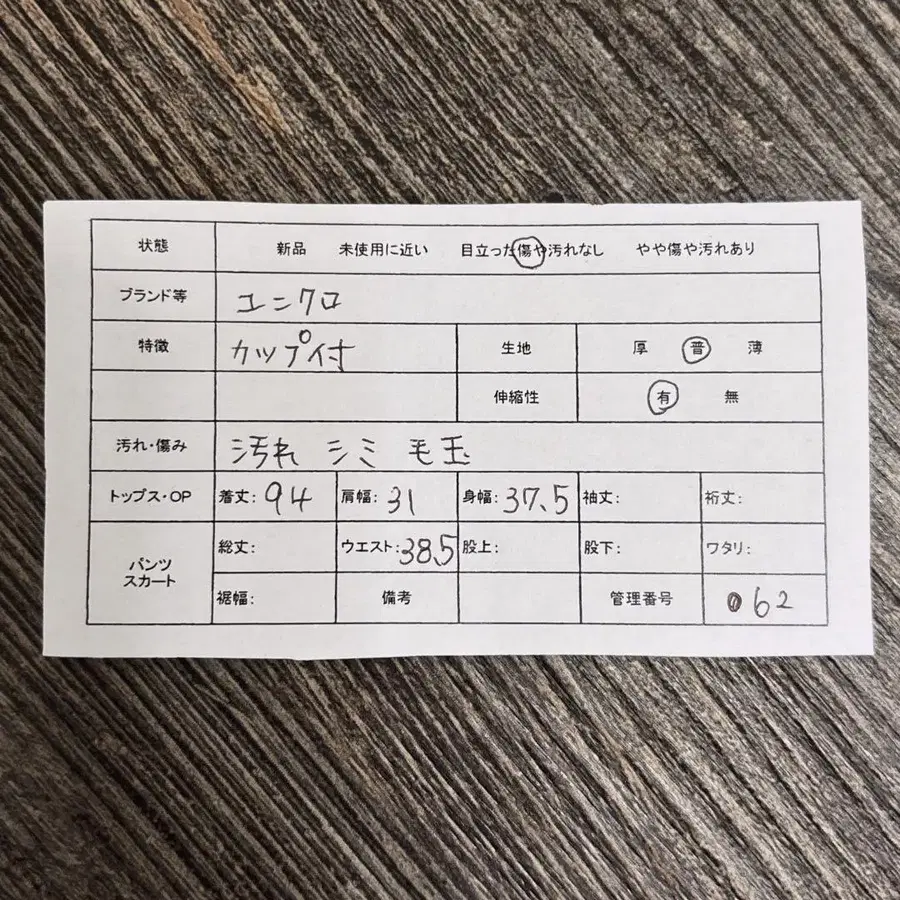 状態 新品 未使用に近い 目立った傷や汚れなし やや傷や汚れあり
ブランド等 ユニクロ
特徴 カップ付 生地 厚 普 薄
伸縮性 有 無
汚れ・傷み 汚れ シミ 毛玉
トップス・OP 着丈:94 肩幅:31 身幅:37.5 袖丈: 裄丈:
パンツ スカート 総丈: ウエスト:38.5 股上: 股下: ワタリ:
裾幅: 備考 管理番号 062